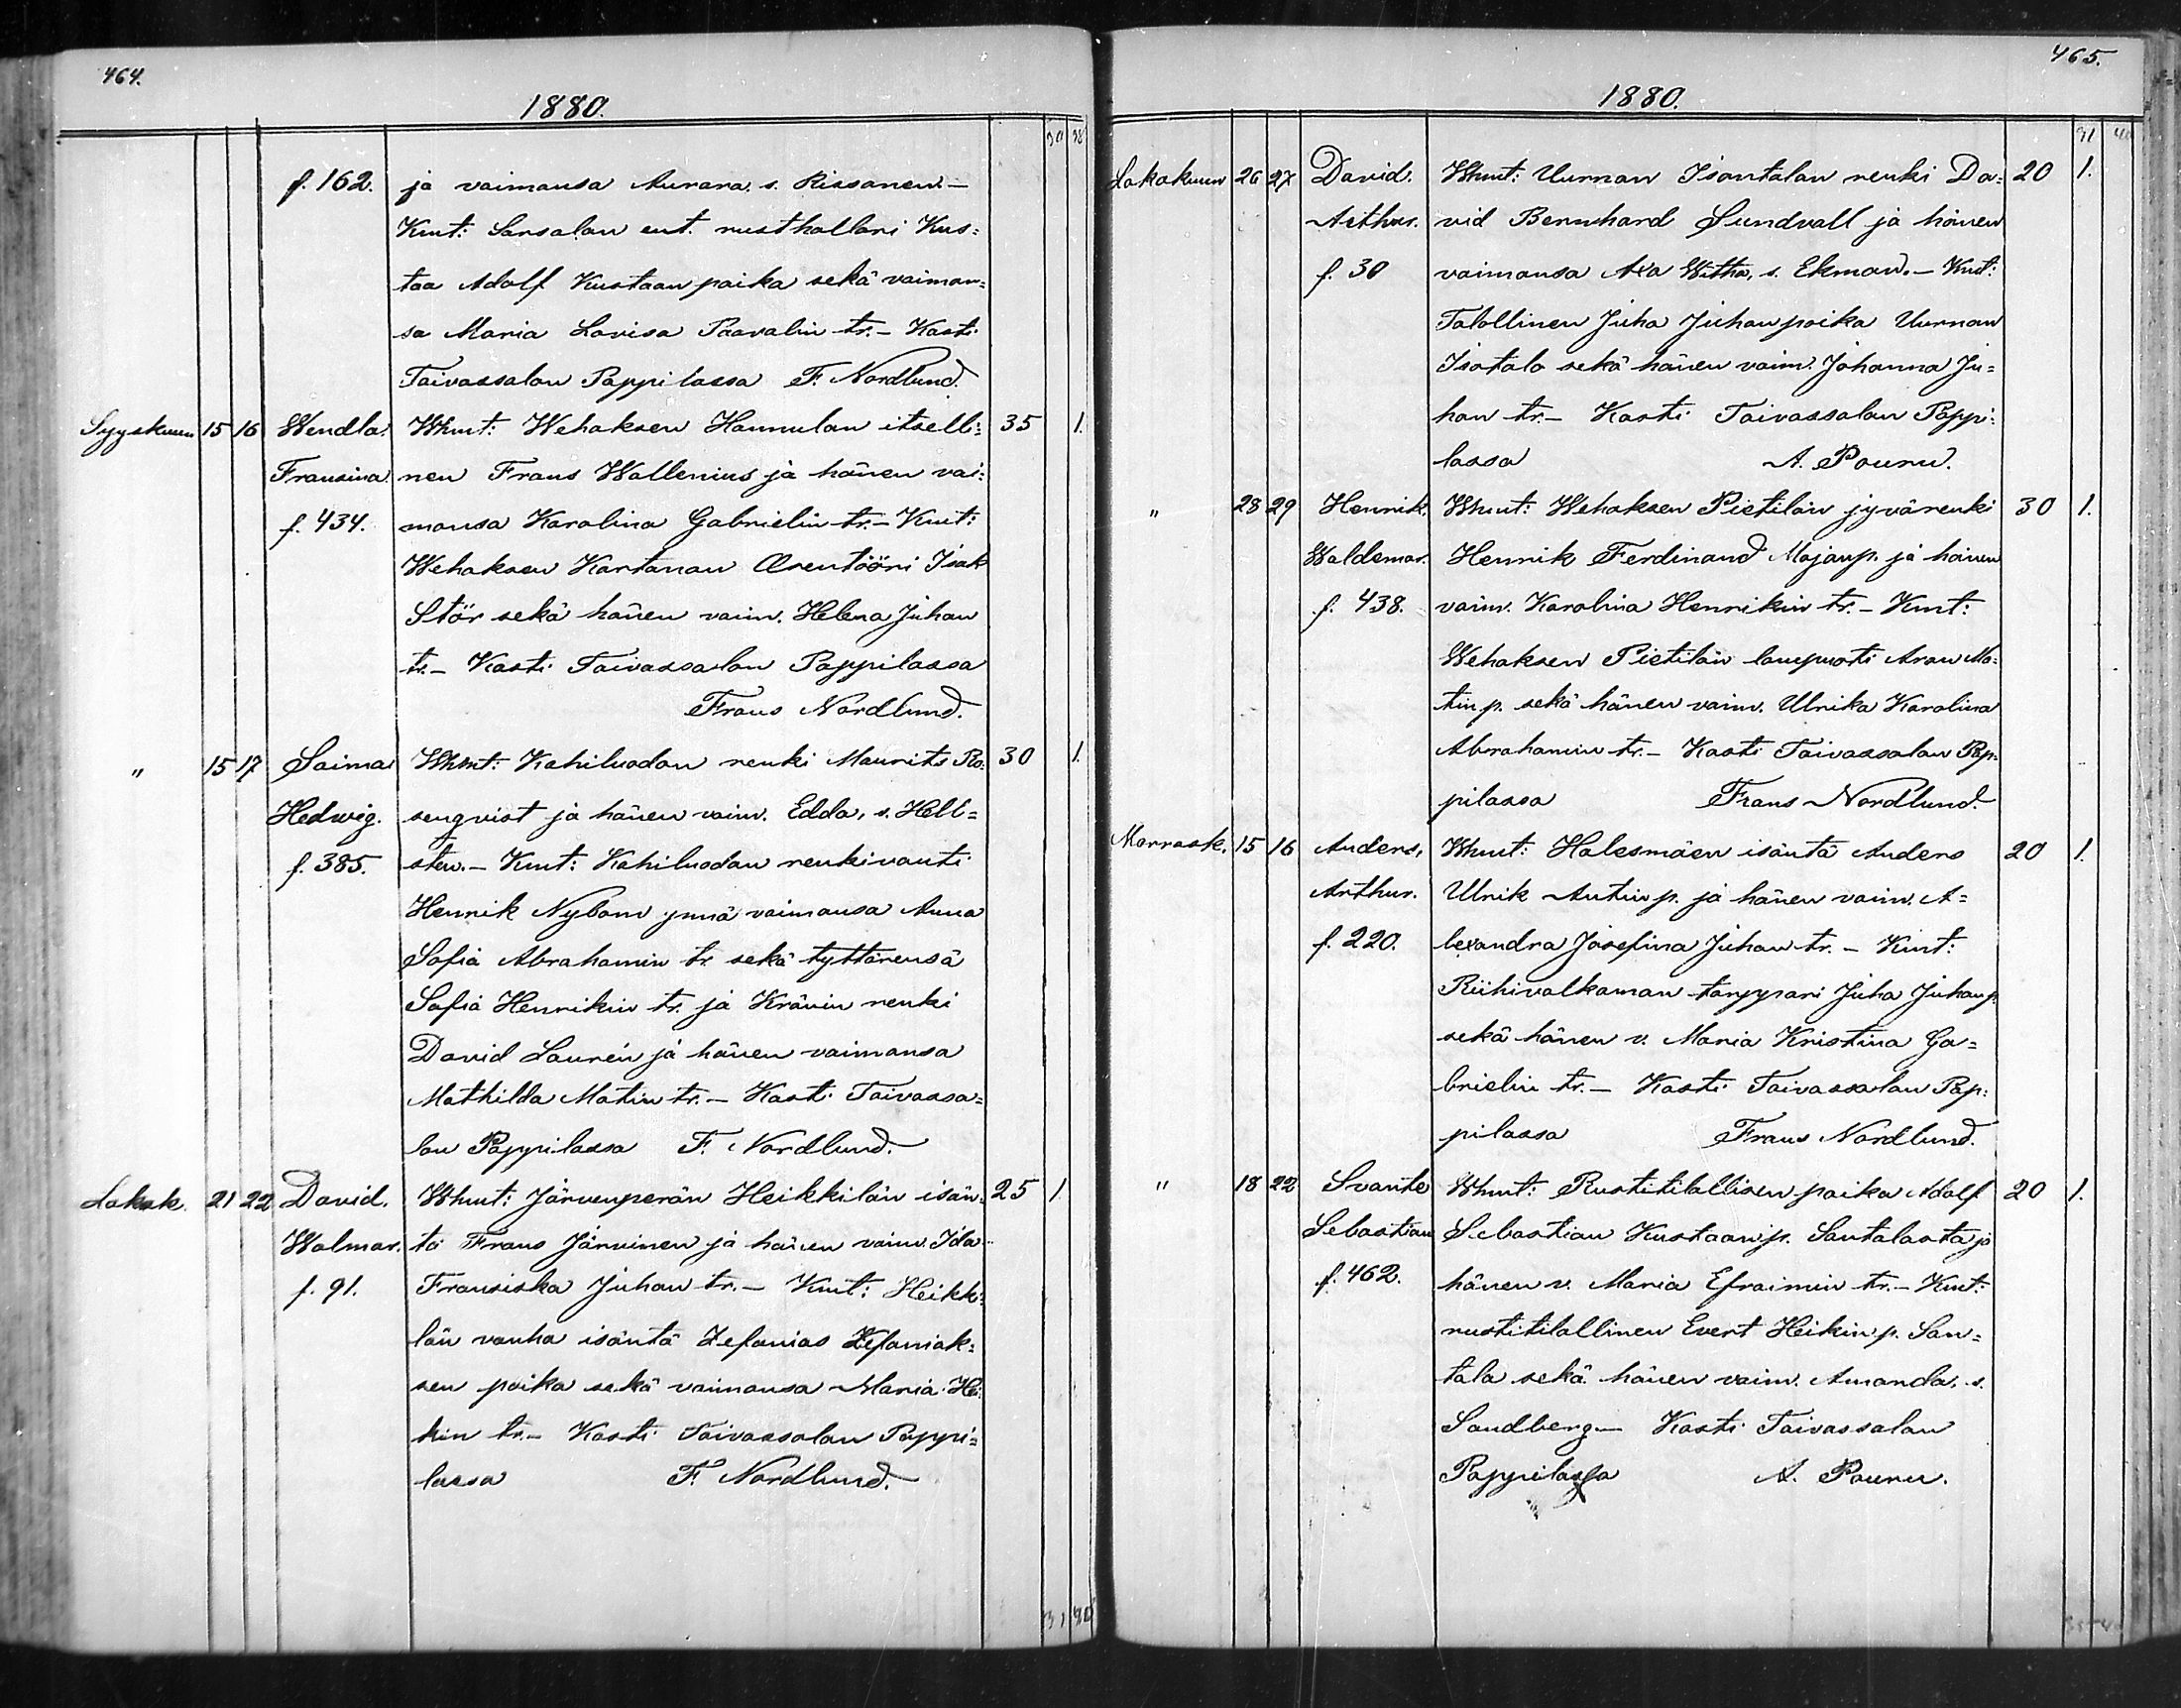 464.
1880.
30 38
f. 162. ja vaimansa Aurora. s. Rissanen.—
Kmt: Sarsalan ent. rusthollari Kus=
taa Adolf Kustaan poika sekä vaiman=
sa Maria Lovisa Paavalin tr.— Kasti
Taivassalon Pappilassa F. Nordlund.
Syyskuun 15 16 Wendla. Whmt: Wehaksen Hannulan itselli= 35 1.
Fransina. nen Frans Wallenius ja hänen vai=
f. 434. mansa Karolina Gabrielin tr.— Kmt:
Wehaksen Kartanan Arentööri Isak
Stör sekä hänen vaim. Helena Juhan
tr.— Kasti Taivassalon Pappilassa
Frans Nordlund.
" 15 17 Saima Whmt: Kahiluodon renki Maurits Ro= 30 1.
Hedwig. senqvist ja hänen vaim. Edda, s. Hell=
f. 385. sten.— Kmt: Kahiluodon renkivouti
Henrik Nybom ynnä vaimansa Anna
Sofia Abrahamin tr. sekä tyttärensä
Sofia Henrikin tr. ja Kränin renki
David Laurén ja hänen vaimansa
Mathilda Matin tr.— Kasti Taivassa=
lon Pappilassa F. Nordlund.
Lokak. 21 22 David. Whmt: Järvenperän Heikkilän isän= 25 1.
Walmar. tä Frans Järvinen ja hänen vaim. Ida
f. 91. Fransiska Juhan tr.— Kmt: Heikki=
län vanha isäntä Zefanias Zefaniak=
sen poika sekä vaimansa Maria Hei=
kin tr.— Kasti Taivassalon Pappi=
lassa F. Nordlund.
31 40
465.
1880.
31 40
Lokakuun 26 27 David. Whmt: Uurnan Isontalon renki Da= 20 1.
Arthur. vid Bernhard Sundvall ja hänen
f. 30 vaimansa Axa Witha, s. Ekman.— Kmt:
Talollinen Juha Juhanpoika Uurnan
Isotalo sekä hänen vaim. Johanna Ju=
han tr.— Kasti Taivassalon Pappi=
lassa A. Pounu.
" 28 29 Henrik. Whmt: Wehaksen Pietilän jyvärenki 30 1.
Waldemar. Henrik Ferdinand Majanp. ja hänen
f. 438. vaim. Karolina Henrikin tr.— Kmt:
Wehaksen Pietilän lampuoti Aron Ma=
tin p. sekä hänen vaim. Ulrika Karolina
Abrahamin tr.— Kasti Taivassalon Pap=
pilassa Frans Nordlund.
Marrask. 15 16 Anders, Whmt: Halesmäen isäntä Anders 20 1.
Arthur. Ulrik Antin p. ja hänen vaim. A=
f. 220. lexandra Josefina Juhan tr.— Kmt:
Riihivalkaman torppari Juha Juhan p.
sekä hänen v. Maria Kristina Ga=
brielin tr.— Kasti Taivassalon Pap=
pilassa Frans Nordlund.
" 18 22 Svante Whmt: Rustitilallisen poika Adolf 20 1.
Sebastian Sebastian Kustaan p. Santalasta ja
f. 462. hänen v. Maria Efraimin tr.— Kmt:
rustitilallinen Evert Heikin p. San=
tala sekä hänen vaim. Amanda, s.
Sandberg— Kasti Taivassalon
Pappilassa A. Pounu.